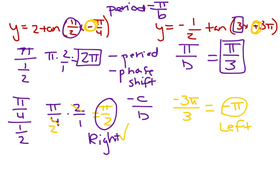 period = π/b
y = 2 tan (π/2 x - π/4)
y = -1/2 tan (3x + 3π)
π · 2/1 = 2π
- period
- phase shift
π/D = π/3
π/4 / 1/2
π/4 · 2/1 = π/2
-C/D
-3π/3 = -π
Right ✓
Left